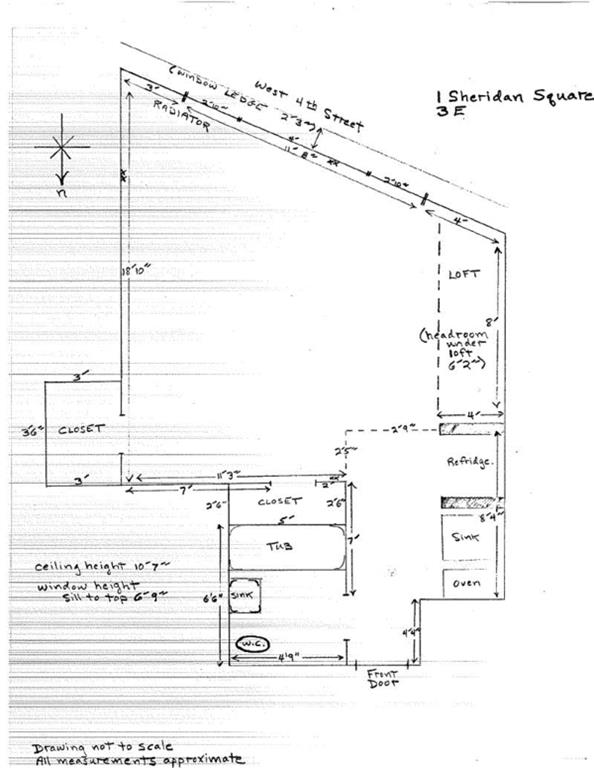 1 Sheridan Square
3E
West 4th Street
(WINDOW LEDGE 2'3")
3'
RADIATOR
2'10"
4'
11'8"
2'10"
4'
n
18'10"
LOFT
8'
(headroom
under
loft
6'2")
4'
3'
3'6"
CLOSET
3'
2'9"
2'5"
Refridge.
11'3"
7'
2"
2'6"
CLOSET
2'6"
5'
7'
8'4"
TUB
Sink
Ceiling height 10'7"
window height
Sill to top 6'9"
6'6"
SINK
Oven
W.C.
4'4"
4'9"
Front
Door
Drawing not to scale
All measurements approximate